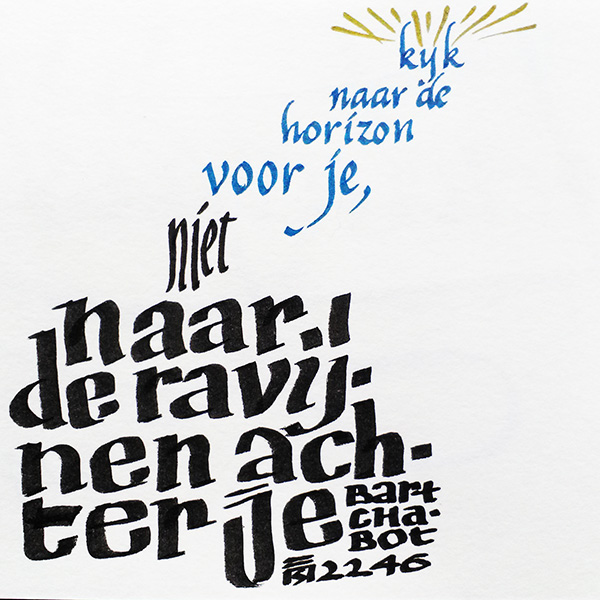 kijk
naar de
horizon
voor je,
niet
naar
de ravij-
nen ach-
ter je
Bart
Cha-
bot
2246